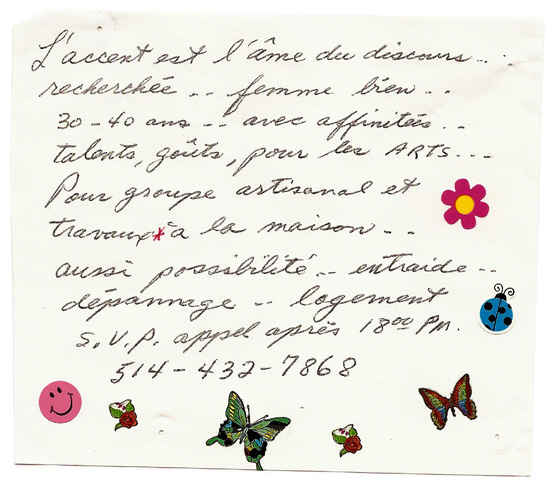 L'accent est l'âme du discours...
recherchée .. femme bien ..
30-40 ans .. avec affinitées ..
talents, goûts, pour les ARTS...
Pour groupe artisanal et
travaux* à la maison ..
aussi possibilité .. entraide ..
dépannage .. logement
S.V.P. appel après 18°° PM.
514-432-7868